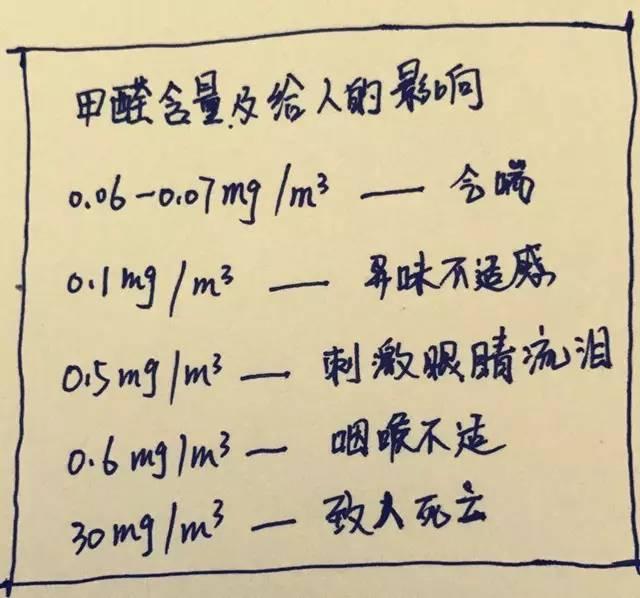 甲醛含量及给人的影响
0.06-0.07mg/m³ — 会喘
0.1mg/m³ — 异味不适感
0.5mg/m³ — 刺激眼睛流泪
0.6mg/m³ — 咽喉不适
30mg/m³ — 致人死亡